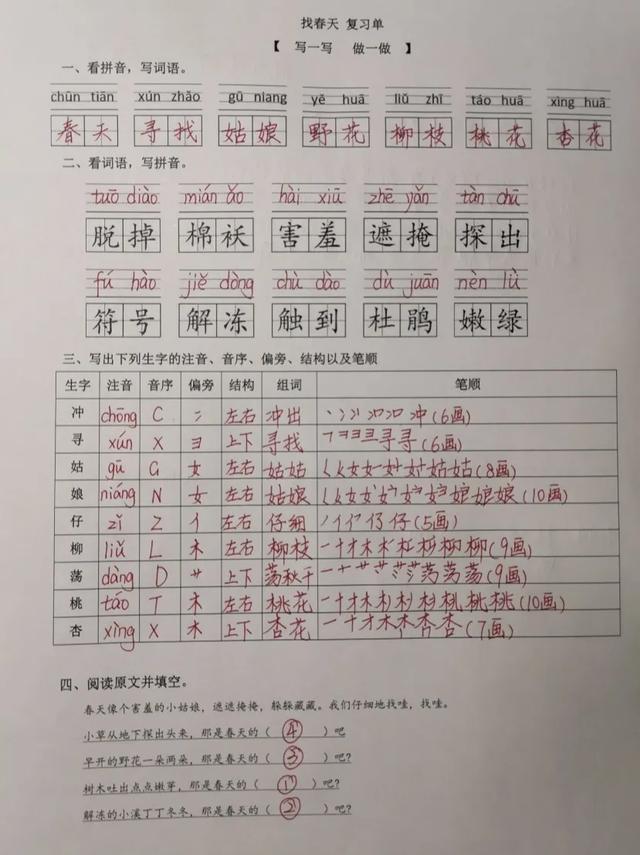 找春天 复习单
【 写一写 做一做 】
一、看拼音，写词语。
chūn tiān xún zhǎo gū niang yě huā liǔ zhī táo huā xìng huā
春天 寻找 姑娘 野花 柳枝 桃花 杏花
二、看词语，写拼音。
tuō diào mián ǎo hài xiū zhē yǎn tàn chū
脱掉 棉袄 害羞 遮掩 探出
fú hào jiě dòng chù dào dù juān nèn lǜ
符号 解冻 触到 杜鹃 嫩绿
三、写出下列生字的注音、音序、偏旁、结构以及笔顺
生字 注音 音序 偏旁 结构 组词 笔顺
冲 chōng C 冫 左右 冲出 冲(6画)
寻 xún X 彐 上下 寻找 寻(6画)
姑 gū G 女 左右 姑姑 姑(8画)
娘 niáng N 女 左右 姑娘 娘(10画)
仔 zǐ Z 亻 左右 仔细 仔(5画)
柳 liǔ L 木 左右 柳枝 柳(9画)
荡 dàng D 艹 上下 荡秋千 荡(9画)
桃 táo T 木 左右 桃花 桃(10画)
杏 xìng X 木 上下 杏花 杏(7画)
四、阅读原文并填空。
春天像个害羞的小姑娘，遮遮掩掩，躲躲藏藏。我们仔细地找哇，找哇。
小草从地下探出头来，那是春天的（ ④ ）吧
早开的野花一朵两朵，那是春天的（ ③ ）吧?
树木吐出点点嫩芽，那是春天的（ ① ）吧?
解冻的小溪丁丁冬冬，那是春天的（ ② ）吧?